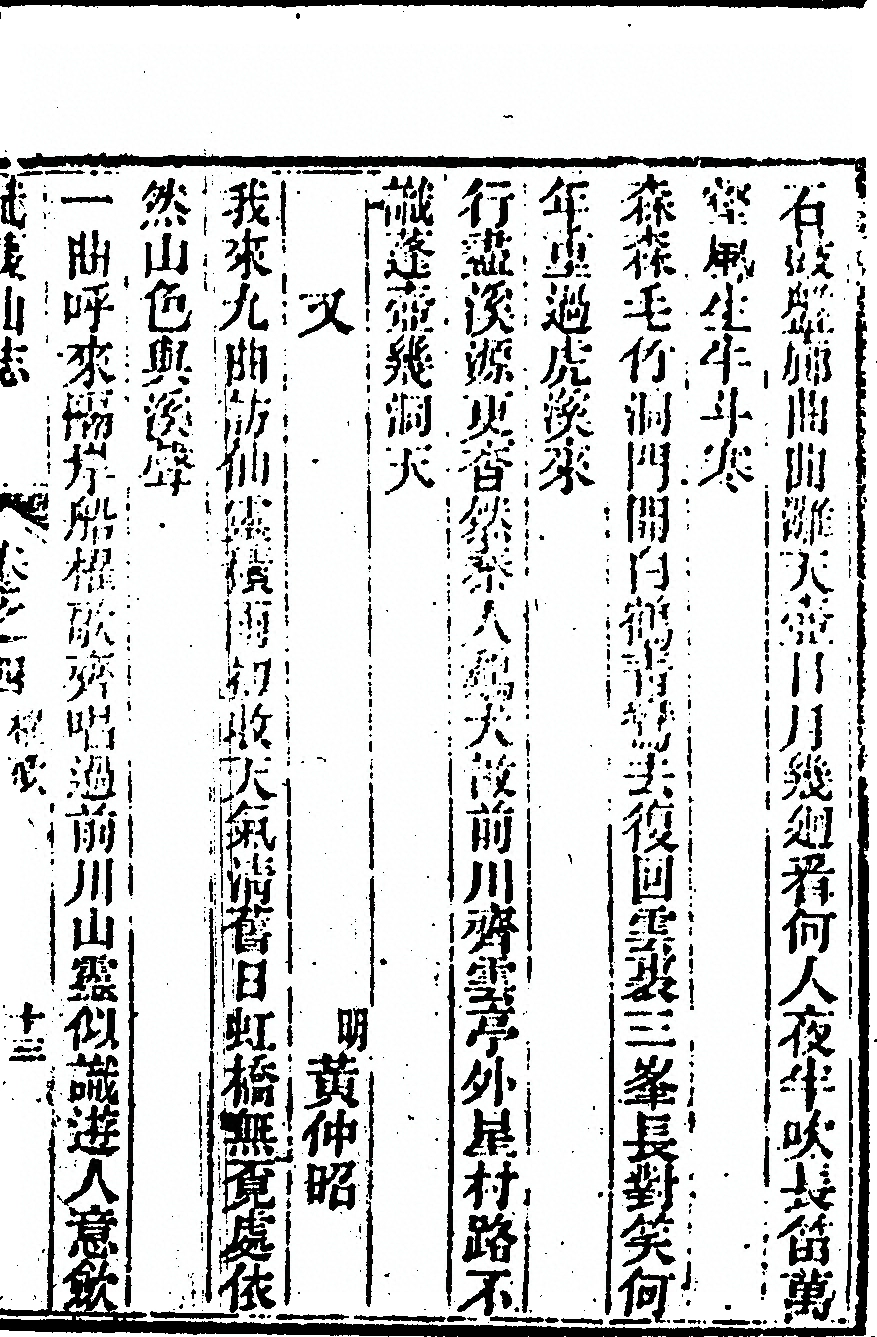 石磴盤旋曲曲灘天壺日月幾廻看何人夜半吹長笛萬
壑風生牛斗寒
森森毛竹洞門開白鶴青鸞去復回雲裳三峯長對笑何
年重過虎溪來
行盡溪源更杳然秦人鷄犬散前川齊雲亭外星村路不
識蓬壺幾洞天
又
明 黃仲昭
我來九曲訪仙靈積雨初收天氣清舊日虹橋無覔處依
然山色與溪聲
一曲呼來隔岸船櫂歌齊唱過前川山靈似識遊人意歛
武夷山志
卷之十四 櫂歌
十三